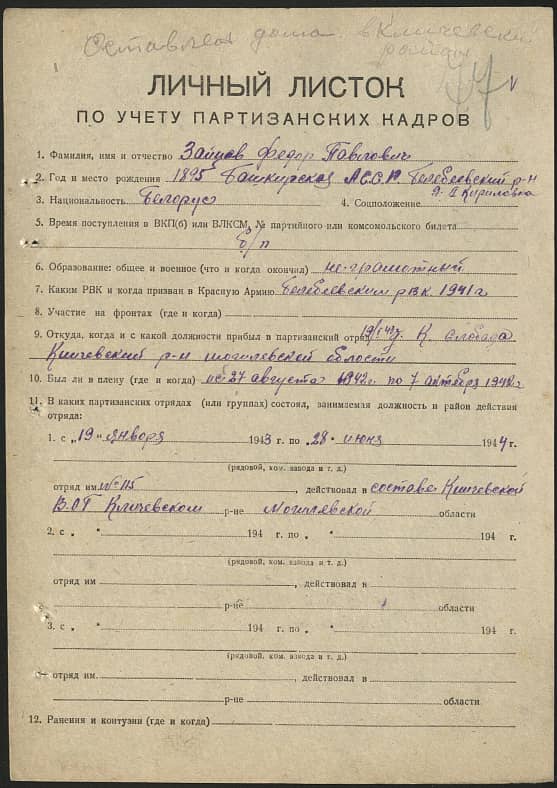 Оставлен дома в Кличевском районе
ЛИЧНЫЙ ЛИСТОК
ПО УЧЕТУ ПАРТИЗАНСКИХ КАДРОВ
1. Фамилия, имя и отчество Зайцев Федор Павлович
2. Год и место рождения 1895 Башкирская АССР Белебеевский р-н
д. II Кириловка
3. Национальность Белорус 4. Соцположение
5. Время поступления в ВКП(б) или ВЛКСМ, № партийного или комсомольского билета
б/п
6. Образование: общее и военное (что и когда окончил) не грамотный
7. Каким РВК и когда призван в Красную Армию Белебеевским рвк 1941 г
8. Участие на фронтах (где и когда)
9. Откуда, когда и с какой должности прибыл в партизанский отряд К. Слобода
Кличевский р-н могилевской области
10. Был ли в плену (где и когда) с 27 августа 1942г. по 7 октября 1942г
11. В каких партизанских отрядах (или группах) состоял, занимаемая должность и район действия
отряда:
1. с „19" января 1943 г. по „28" июня 1944 г.
(рядовой, ком. взвода и т. д.)
отряд им. № 115, действовал в составе Кличевской
В.О Г Кличевском р-не Могилевской области
2. с „ " 194 г. по „ " 194 г.
(рядовой, ком. взвода и т. д.)
отряд им , действовал в
с р-не области
3. с „ " 194 г. по „ " 194 г.
(рядовой, ком. взвода и т. д.)
отряд им. , действовал в
р-не области
12. Ранения и контузии (где и когда)